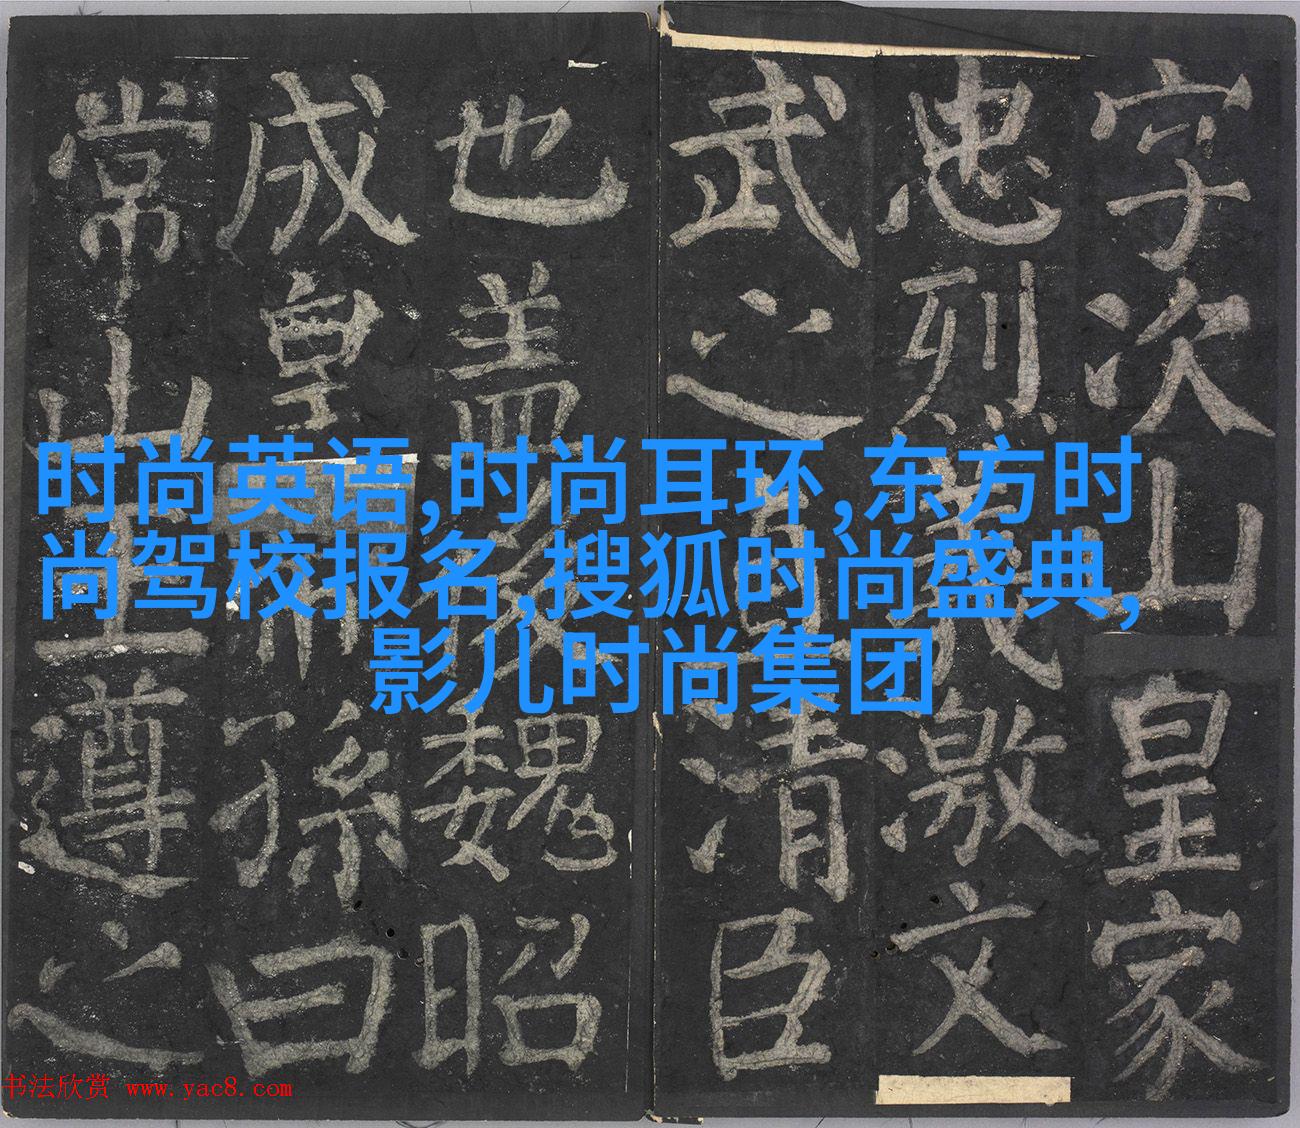 字次山皇家
忠烈義激文
武之直清臣
也盖後魏昭
成皇帝孫曰
常山王遵之
时尚英语,时尚耳环,东方时
尚驾校报名,搜狐时尚盛典,
影儿时尚集团
书法欣赏 www.yac8.com